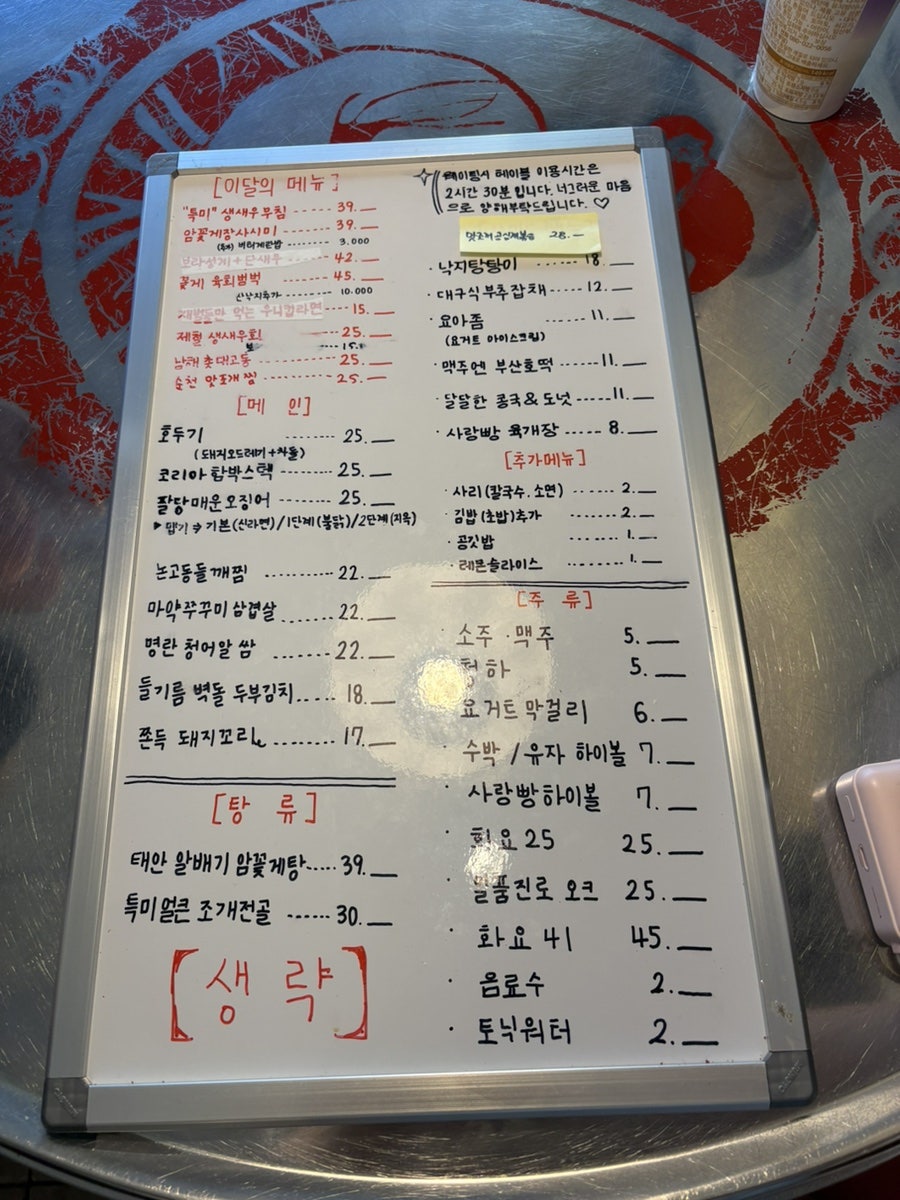 [이달의 메뉴]
"특미" 생새우무침 ------ 39.__
암꽃게장사시미 ------- 39.__
(추가) 버터계란밥 -------- 3.000
보라성게 + 단새우 ------ 42.__
꽃게 육회범벅 -------- 45.__
산낙지추가 ---------- 10.000
먹는 우니칼라면 ---- 15.__
제철 생새우회 25.__
15.
남해 참대고동 ---------- 25.__
순천 맛조개찜 ---------- 25.__
[메 인]
호두기 -------- 25.__
(돼지오드레기+차돌)
코리아 함박스텍 -------- 25.__
팔당매운오징어 -------- 25.__
▶ 맵기 → 기본(신라면)/1단계(불닭)/2단계(지옥)
논고동들깨찜 --------- 22.__
마약쭈꾸미삼겹살 -------- 22.__
명란 청어알 쌈 ------- 22.__
들기름 벽돌 두부김치---- 18.__
쫀득 돼지꼬리 -------- 17.__
[탕 류]
태안 알배기 암꽃게탕----- 39.__
특미얼큰 조개전골 ------ 30.__
[생 략]
웨이팅시 테이블 이용시간은
2시간 30분 입니다. 너그러운 마음
으로 양해부탁드립니다. ♡
28.__
· 낙지탕탕이 ------ 18.__
· 대구식부추잡채 ----- 12.__
· 요아좀 ------ 11.__
(요거트 아이스크림)
· 맥주엔 부산호떡 ----- 11.__
· 달달한 콩국&도넛 ----- 11.__
· 사랑빵 육개장 ----- 8.__
[추가메뉴]
· 사리(칼국수.소면) ------ 2.__
· 김밥(초밥)추가 ------- 2.__
· 공깃밥 -------- 1.__
· 레몬슬라이스 -------- 1.__
[주 류]
· 소주·맥주 5.__
청하 5.__
· 요거트막걸리 6.__
· 수박/유자 하이볼 7.__
· 사랑빵하이볼 7.__
· 화요25 25.__
· 일품진로 오크 25.__
· 화요 41 45.__
· 음료수 2.__
· 토닉워터 2.__